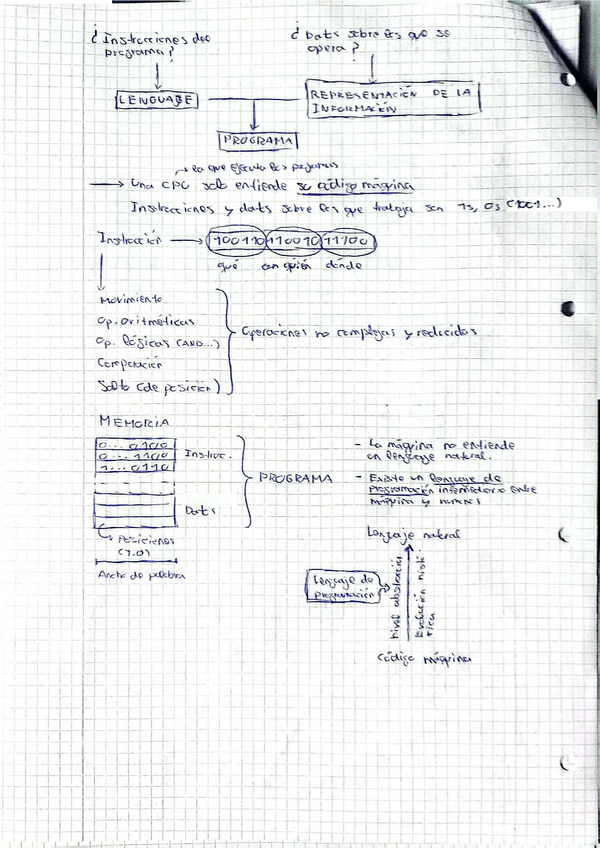 ¿Instrucciones del
programa?
¿Datos sobre los que se
opera?
LENGUAJE
REPRESENTACIÓN DE LA
INFORMACIÓN
PROGRAMA
la que ejecuta los programas
Una CPU solo entiende su código máquina
Instrucciones y datos sobre los que trabaja son 1s, 0s (1001...)
Instrucción
100110 110010 11100
qué con quién dónde
Movimiento
Op. aritméticas
Op. lógicas (AND...)
Comparación
Salto (de posición)
Operaciones no complejas y reducidas
MEMORIA
0...0100
0...1100
1...0110
Instruc.
Datos
PROGRAMA
Posiciones
(1,0)
Ancho de palabra
- La máquina no entiende
un lenguaje natural.
- Existe un lenguaje de
programación intermediario entre
máquina y humanos
Lenguaje natural
Lenguaje de
programación
Nivel abstracción
Evolución histó
rica
Código máquina